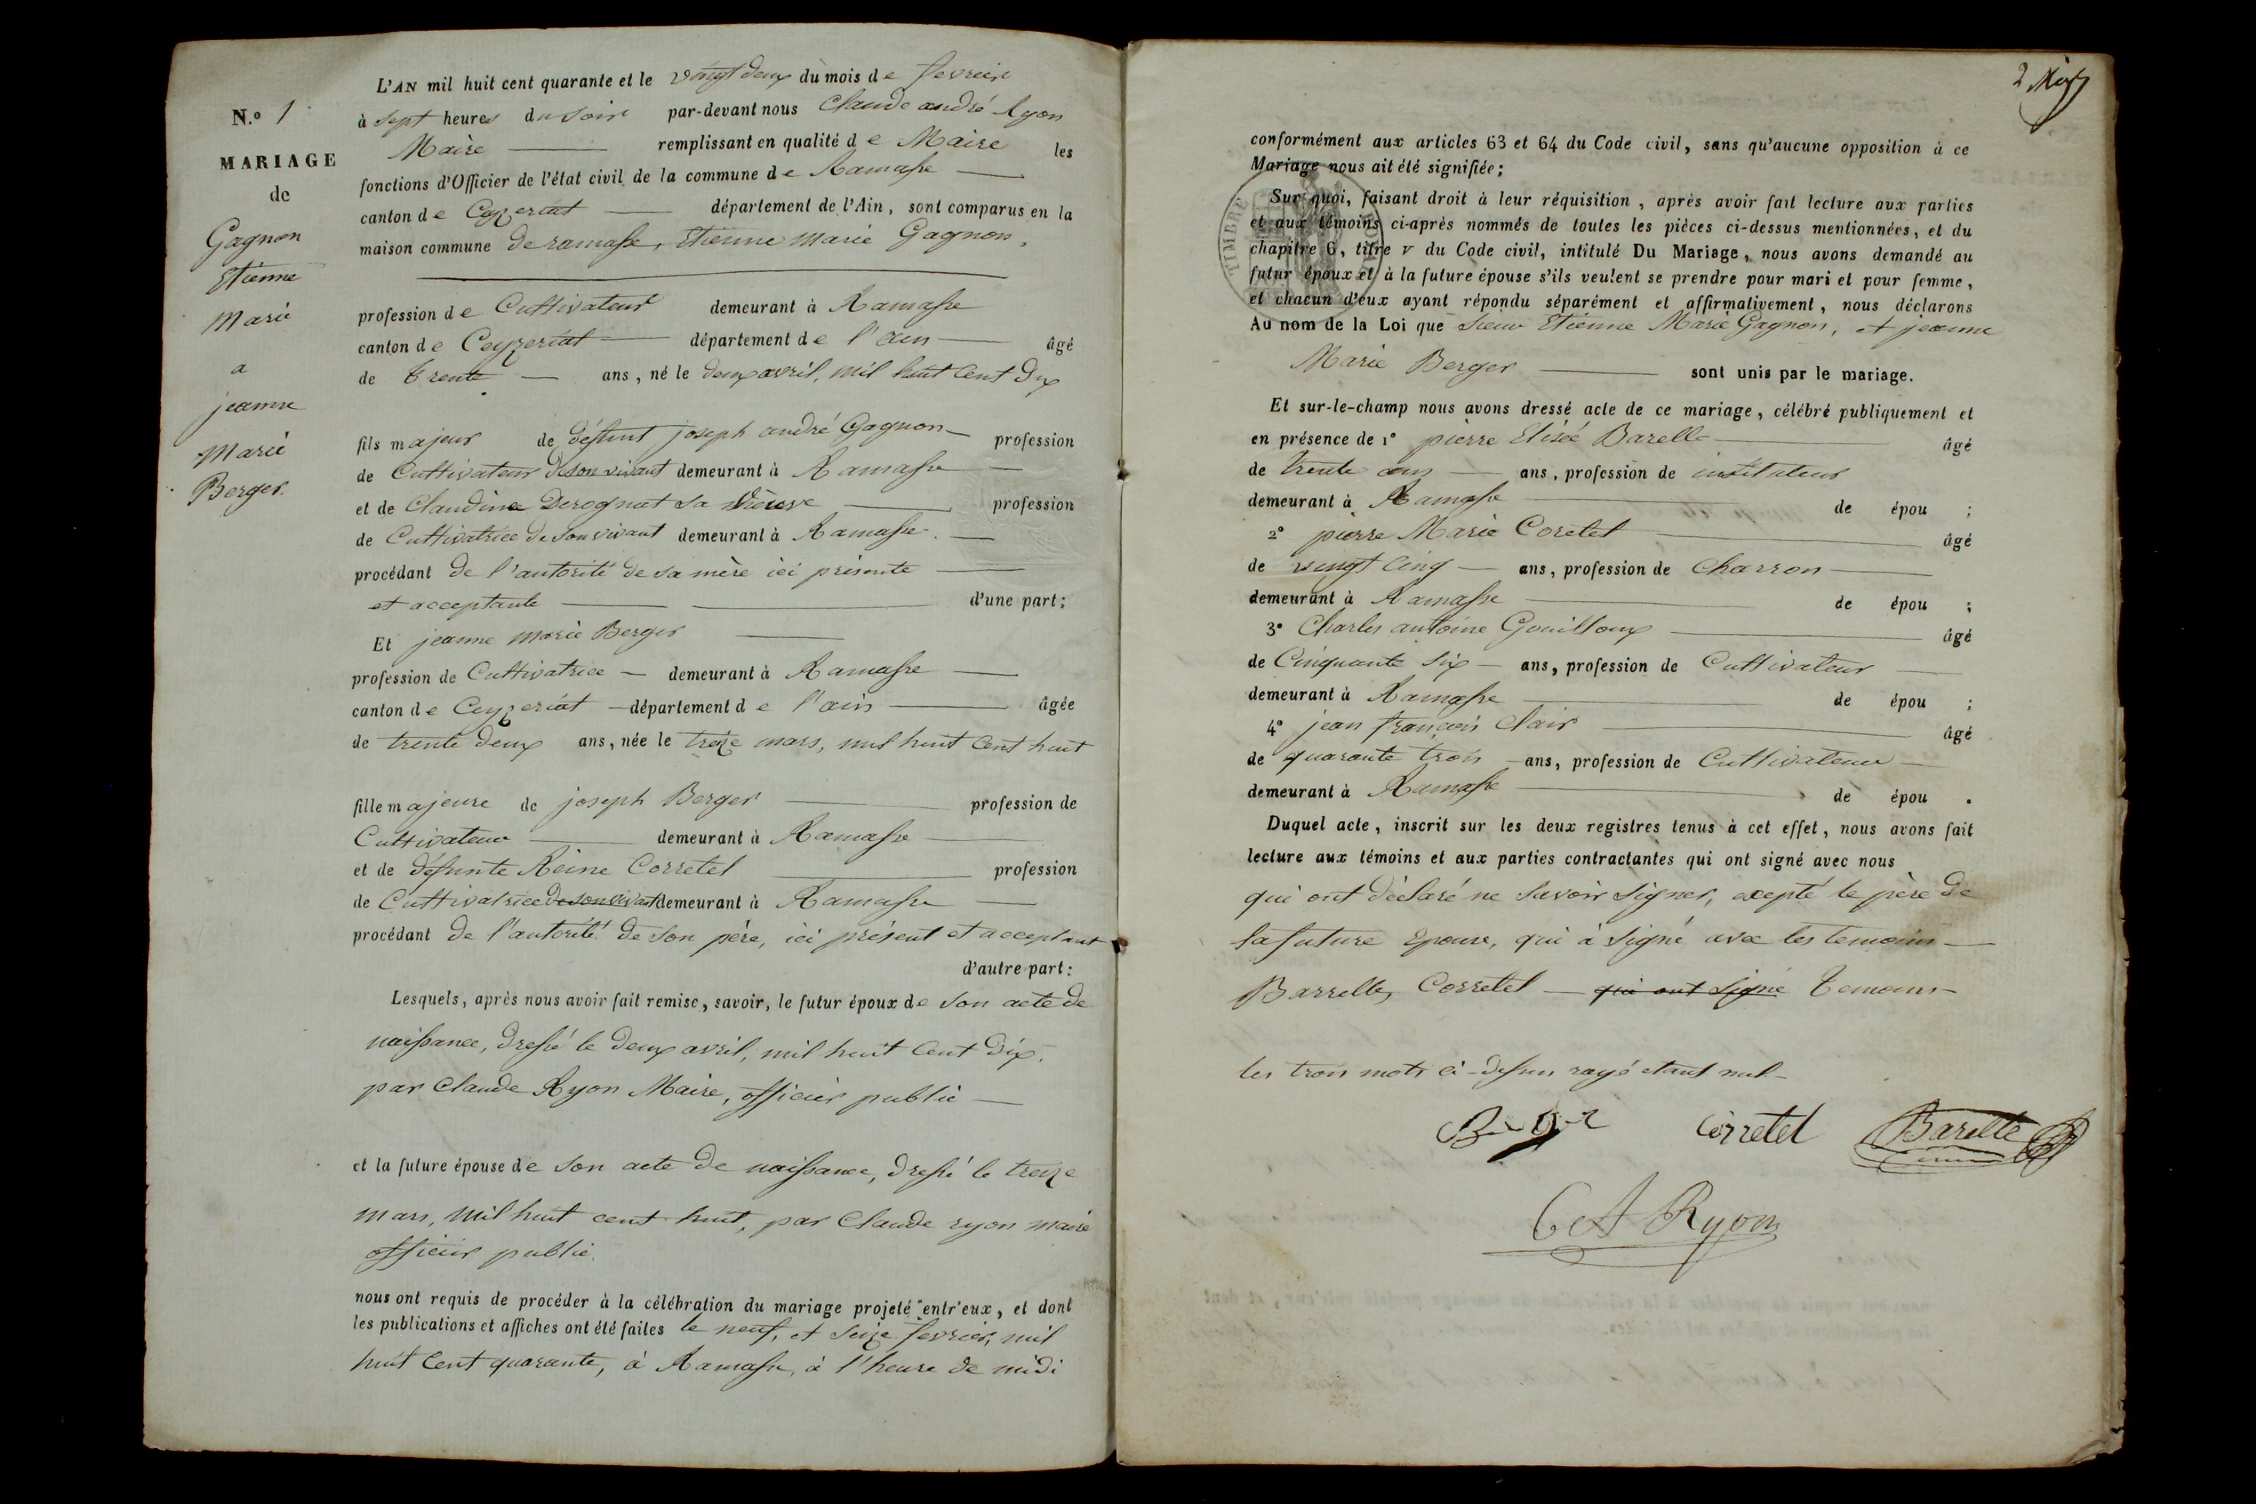 N.º 1
MARIAGE
de
Gagnon
Etienne
Marie
a
jeanne
Marie
Berger.
L'AN mil huit cent quarante et le vingt deux du mois de fevrier
à sept heures du soir par-devant nous Claude andré Ryon
Maire remplissant en qualité de Maire les
fonctions d'Officier de l'état civil de la commune de Ramasse
canton de Ceyzeriat département de l'Ain, sont comparus en la
maison commune de ramasse, Etienne Marie Gagnon,
profession de Cultivateur demeurant à Ramasse
canton de Ceyzeriat département de l'ain âgé
de trente ans, né le deux avril, mil huit Cent dix
fils majeur de défunt joseph andré Gagnon profession
de Cultivateur de son vivant demeurant à Ramasse
et de Claudine Derognat sa profession
de Cultivatrice de son vivant demeurant à Ramasse
procédant de l'autorité de sa mère ici présente
et acceptante d'une part;
Et jeanne Marie Berger
profession de Cultivatrice demeurant à Ramasse
canton de Ceyzeriat département de l'ain âgée
de trente deux ans, née le treize mars, mil huit Cent huit
fille majeure de joseph Berger profession de
Cultivateur demeurant à Ramasse
et de défunte Reine Corretel profession
de Cultivatrice de son vivant demeurant à Ramasse
procédant de l'autorité de son père, ici présent et acceptant
d'autre part:
Lesquels, après nous avoir fait remise, savoir, le futur époux de son acte de
naissance, dressé le deux avril, mil huit Cent dix,
par Claude Ryon Maire, officier public
et la future épouse de son acte de naissance, dressé le treize
mars, mil huit cent huit, par Claude ryon maire
officier public.
nous ont requis de procéder à la célébration du mariage projeté entr'eux, et dont
les publications et affiches ont été faites le neuf, et seize fevrier, mil
huit Cent quarante, à Ramasse, à l'heure de midi
2
conformément aux articles 63 et 64 du Code civil, sans qu'aucune opposition à ce
Mariage nous ait été signifiée;
TIMBRE
Sur quoi, faisant droit à leur réquisition, après avoir fait lecture aux parties
et aux témoins ci-après nommés de toutes les pièces ci-dessus mentionnées, et du
chapitre 6, titre v du Code civil, intitulé Du Mariage, nous avons demandé au
futur époux et à la future épouse s'ils veulent se prendre pour mari et pour femme,
et chacun d'eux ayant répondu séparément et affirmativement, nous déclarons
Au nom de la Loi que Sieur Etienne Marie Gagnon, et jeanne
Marie Berger sont unis par le mariage.
Et sur-le-champ nous avons dressé acte de ce mariage, célébré publiquement et
en présence de 1º pierre Elisée Barelle âgé
de trente ans ans, profession de instituteur
demeurant à Ramasse de épou ;
2º pierre Marie Coretel âgé
de vingt Cinq ans, profession de Charron
demeurant à Ramasse de épou ;
3º Charles antoine Gouilloux âgé
de Cinquante six ans, profession de Cultivateur
demeurant à Ramasse de épou ;
4º jean françois Clair âgé
de quarante trois ans, profession de Cultivateur
demeurant à Ramasse de épou .
Duquel acte, inscrit sur les deux registres tenus à cet effet, nous avons fait
lecture aux témoins et aux parties contractantes qui ont signé avec nous
qui ont déclaré ne savoir signer, excepté le père de
la future Epouse, qui à signé avec les temoins
Barrelle, Corretel qui ont signé temoins
les trois mots ci-dessus rayé etant nul
Corretel Barelle
C A Ryon